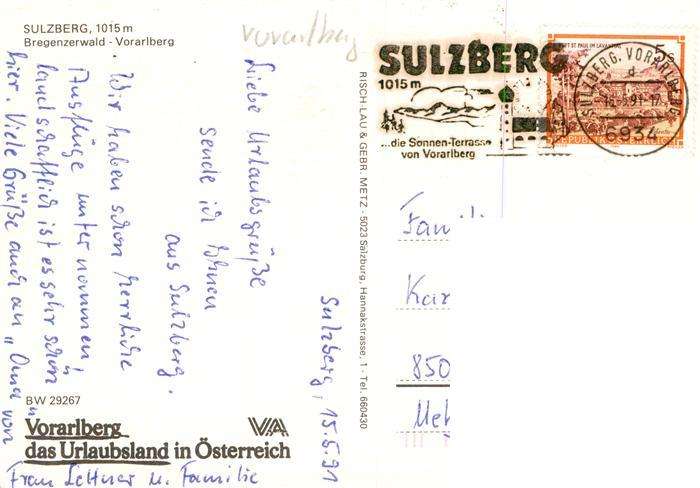 SULZBERG, 1015 m
Bregenzerwald - Vorarlberg
vorarlberg
SULZBERG
1015 m
...die Sonnen-Terrasse
von Vorarlberg
STIFT ST. PAUL IM LAVANTTAL
5 S
REPUBLIK ÖSTERREICH
SULZBERG, VORARLBERG
15.5.91-17
6934
Sulzberg, 15.5.91
Liebe Urlaubsgrüße
sende ich Ihnen
aus Sulzberg.
Wir haben schon herrliche
Ausflüge unternommen,
landschaftlich ist es sehr schön
hier. Viele Grüße auch an "Oma" von
Frau Lettner u. Familie
RISCH-LAU & GEBR. METZ - 5023 Salzburg, Hannakstrasse, 1 - Tel. 660430
Fam
Kar
850
Met
BW 29267
Vorarlberg
das Urlaubsland in Österreich
VA